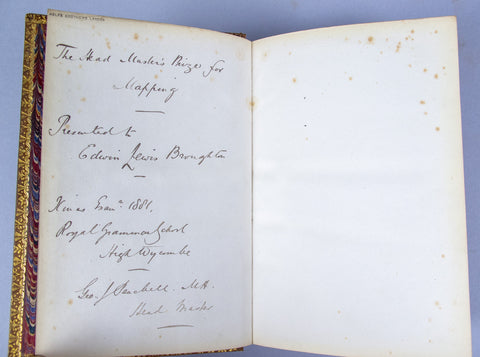 The Head Master's Prizes for
Mapping
Presented to
Edwin Lewis Broughton
Xmas Examn 1881.
Royal Grammar School
High Wycombe
Geo. J Peachell. M.A.
Head Master